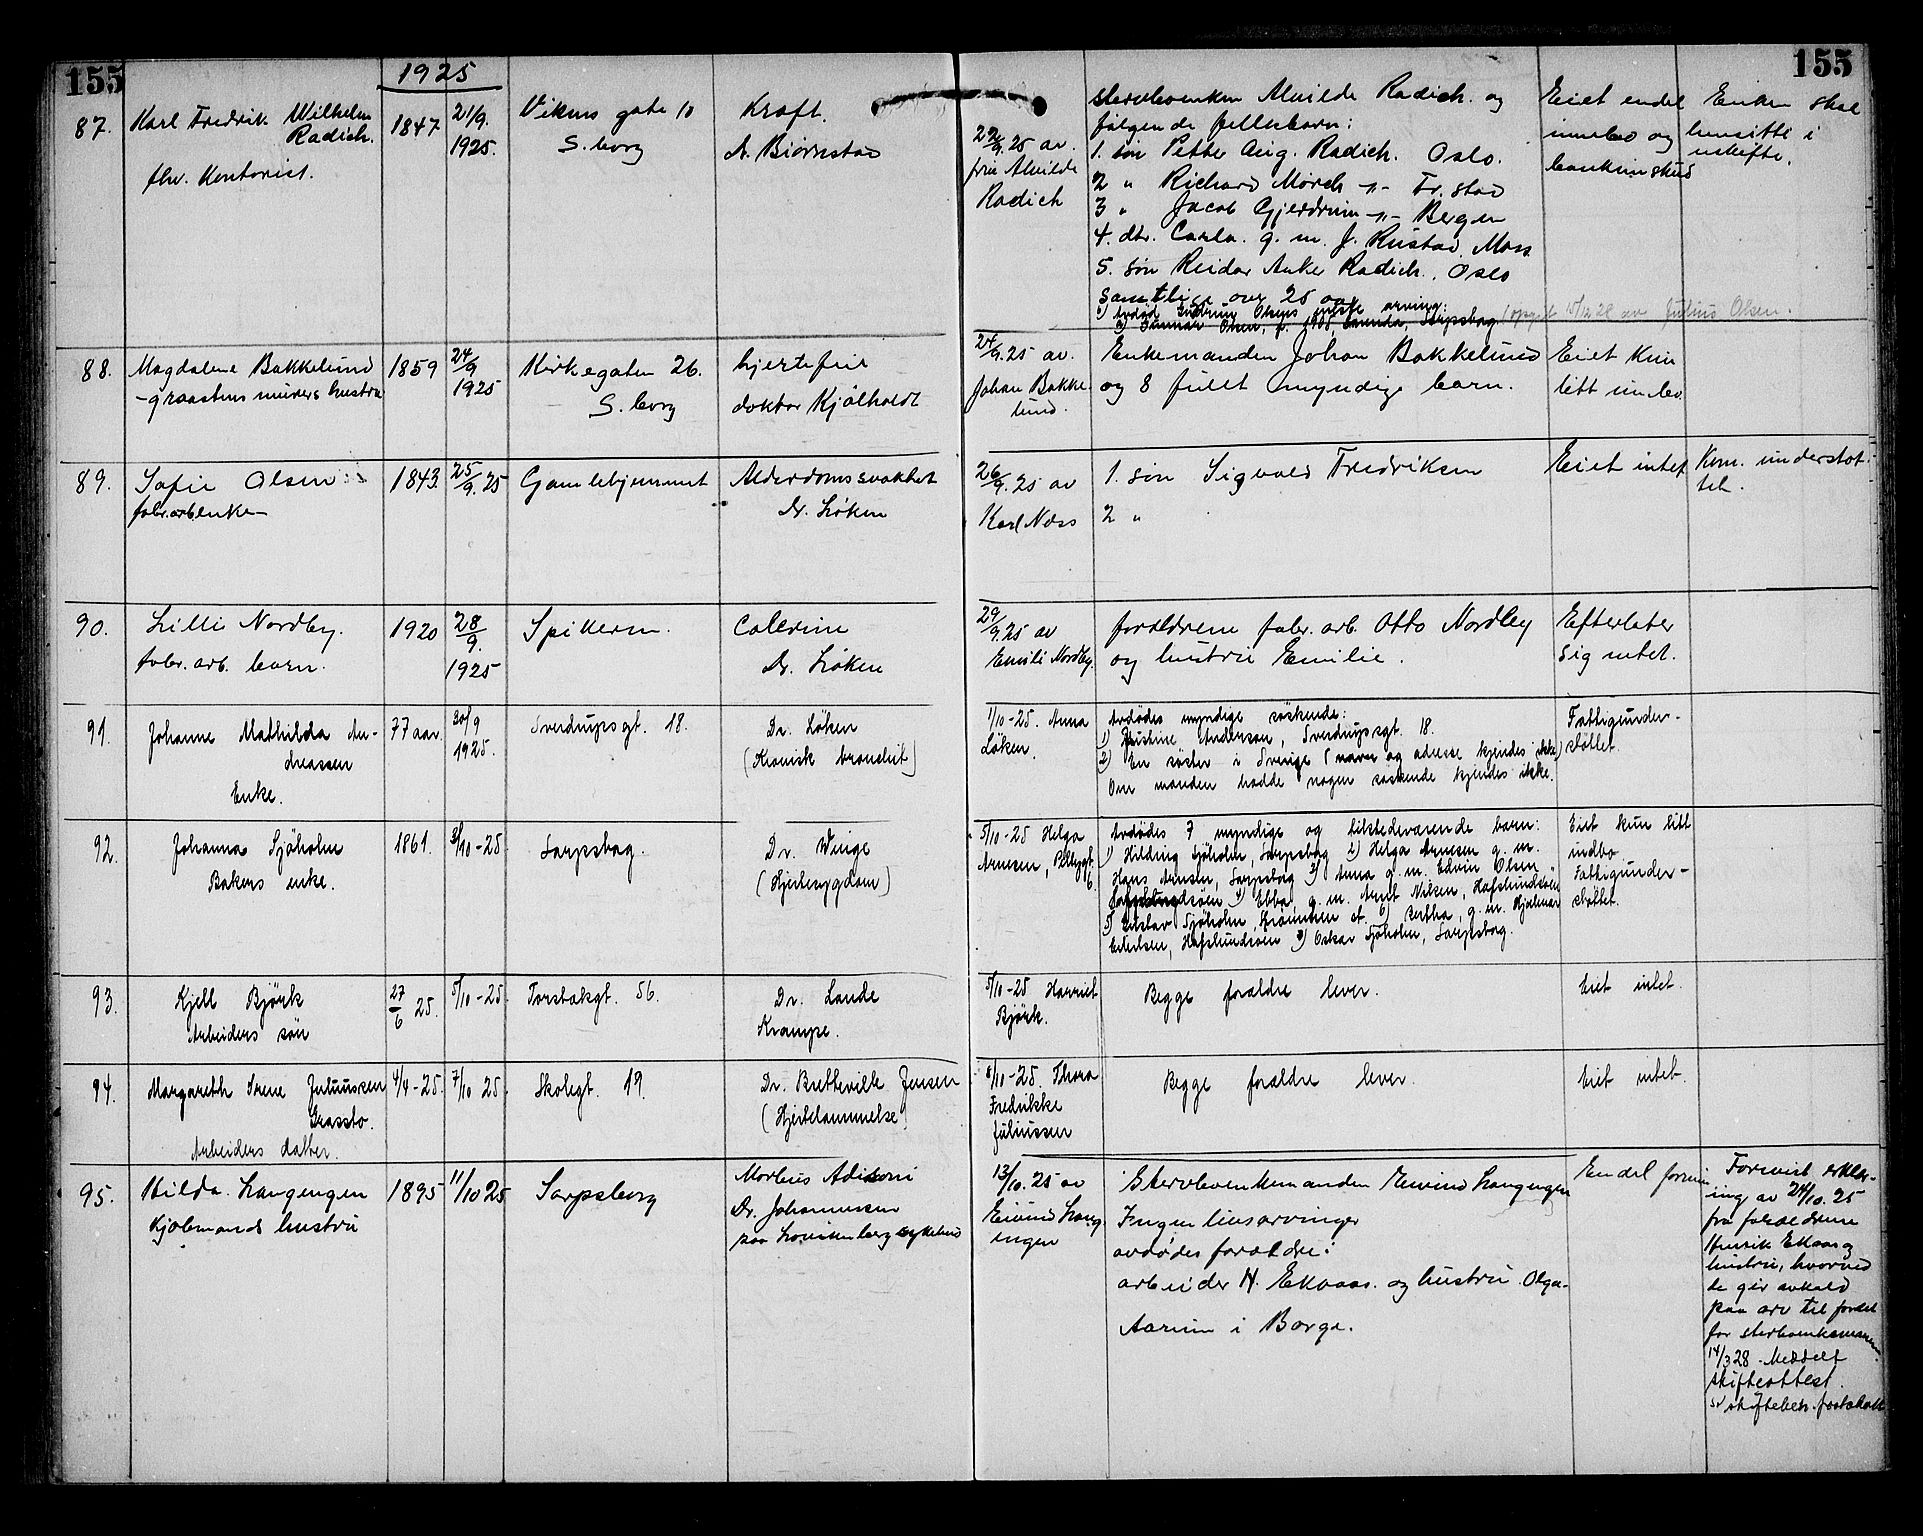 155
1925
155
87.
Karl Fredrik Wilhelm
Radich.
fhv. Kontorist.
1847
21/9.
1925.
Vikens gate 10
S.borg
Kræft.
Dr. Bjørnstad
22/9.25 av
fru Alvilde
Radich
Sterboenken Alvilde Radich. og
følgende fellesbarn:
1. søn Petter Aug. Radich. Oslo.
2 " Richard Mørch -"- Fr.stad
3 " Jacob Gjerdrum -"- Bergen
4. dtr. Carla. g. m. J. Rustad, Moss
5. søn Reidar Anker Radich. Oslo
Samtlige over 25 aar
Eiet endel
innbo og
bankinskud
Enken skal
hensitte i
uskifte.
1) Avdød Olsens arving:
2) Gunnar Olsen, f. 1905, Sarpsborg (opgit 15/12 28 av Julius Olsen.
88.
Magdalene Bakkelund
- graastensmurers hustru
1859
24/9
1925
Kirkegaten 26.
S.borg
hjertefeil
doktor Kjølholdt
24/9.25 av.
Johan Bakke
lund.
Enkemanden Johan Bakkelund
og 8 fullt myndige barn.
Eiet kun
litt innbo
89.
Sofie Olsen
fabr.arb.enke-
1843.
25/9.25
Gamlehjemmet
Alderdomssvakhet
Dr. Løken
26/9.25 av
Karl Næss
1. søn Sigvald Fredriksen
2 "
Eiet intet
Kom. understøt-
tet.
90.
Lilli Nordby.
fabr. arb. barn.
1920
28/9.
1925
Spikeren.
Colerine
Dr. Løken
29/9.25 av
Emili Nordby.
forældrene fabr. arb. Otto Nordby
og hustru Emilie.
Efterlater
sig intet.
91.
Johanne Mathilda An-
dreassen
Enke.
77 aar.
30/9
1925.
Sverdrupsgt. 18.
Dr. Løken
(Kronisk bronchit)
1/10-25. Anna
Løken.
Avdødes myndige søskende:
1) Kristine Anderson, Sverdrupsgt. 18.
2) En søster i Sverige (navn og adresse kjendes ikke)
Om manden hadde nogen søskende kjendes ikke.
Fattigunder-
støttet.
92.
Johanna Sjøholm
Bakers enke.
1861.
3/10-25.
Sarpsborg.
Dr. Winge
(Hjertesygdom)
5/10-25 Helga
Arnesen,
6.
Avdødes 7 myndige og tilstedeværende barn:
1) Hilding Sjøholm, Sarpsborg 2) Helga Arnesen g. m.
Hans Arnesen, Sarpsborg 3) Anna g. m. Edvin Olsen
4) Ebba, g. m. Arnt Nilsen, Hafslundsøen
5) Gustav Sjøholm, 6) Bertha, g. m. Hjalmar
Hafslundsøen 7) Oskar Sjøholm, Sarpsborg.
Eiet kun litt
indbo.
Fattigunder-
støttet.
93.
Kjell Bjørk
Arbeiders søn
27/6 25.
5/10-25.
Torsbækgt. 56.
Dr. Lande
Krampe.
5/10-25 Harriet
Bjørk.
Begge forældre lever.
Eiet intet.
94.
Margareth Irene Juliussen
Arbeiders datter.
4/4-25.
7/10 25.
Skolegt. 19.
Dr. Bretteville Jensen
(Hjertelammelse)
8/10-25. Thora
Fredrikke
Juliussen
Begge forældre lever.
Eiet intet.
95.
Hilda Langengen
Kjøbmands hustru
1895
11/10 25
Sarpsborg
Morbus Adisoni
Dr. Johannessen
paa Lovisenberg sykehus
13/10.25 av
Eivind Lang
engen
Sterboenkemanden Eivind Langengen
Ingen livsarvinger
avdødes forældre:
arbeider H. Ekaas. og hustru Olga.
Aarum i Borge.
Endel formue
Forevist erklær-
ing av 24/10.25
fra forældrene
Henrik Ekaas og
hustru, hvorved
de gir avkald
paa arv til fordel
for sterboenkemannen.
14/3 28. Meddelt
skifteattest.
se skiftebeh. protokoll